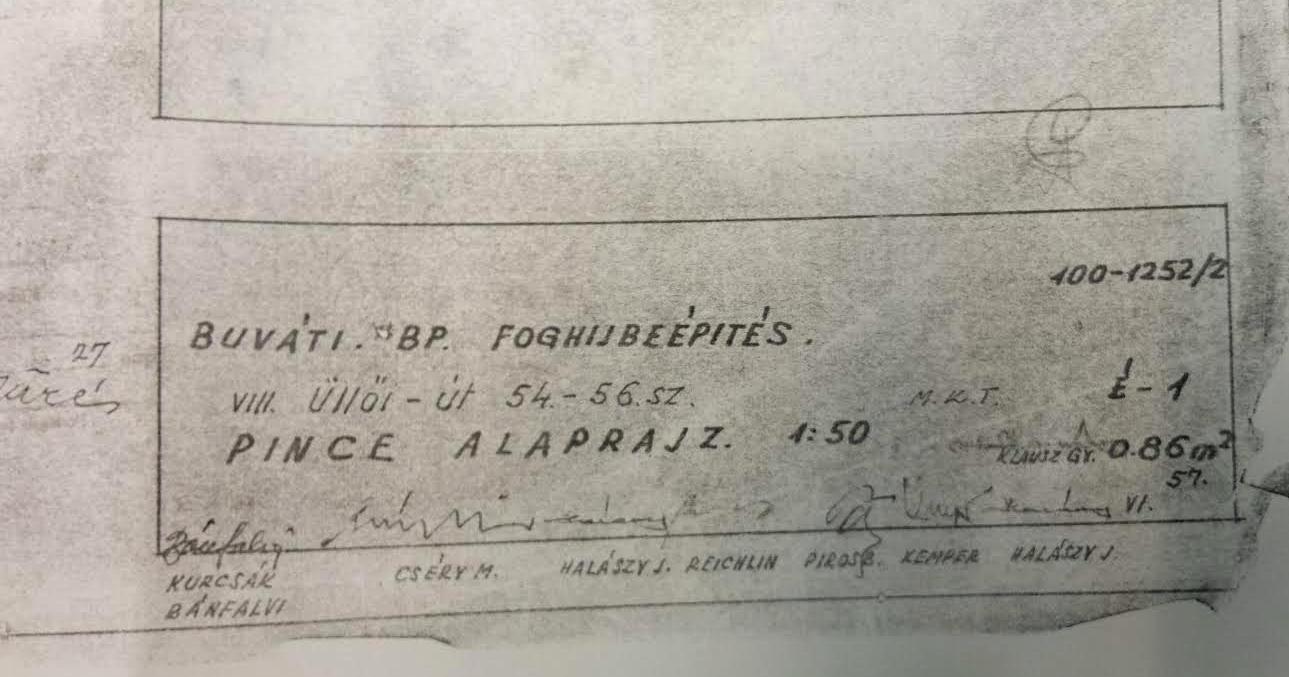 100-1252/2
BUVÁTI. BP. FOGHIJBEÉPITÉS.
27
VIII. Üllői - út 54.- 56. SZ. M.K.T. É-1
PINCE ALAPRAJZ. 1:50 KLAUSZ GY. 0.86 m²
57.
Bánfalvi VI.
KURCSÁK CSÉRY M. HALÁSZY J. REICHLIN PIROS B. KEMPER HALÁSZY J.
BÁNFALVI